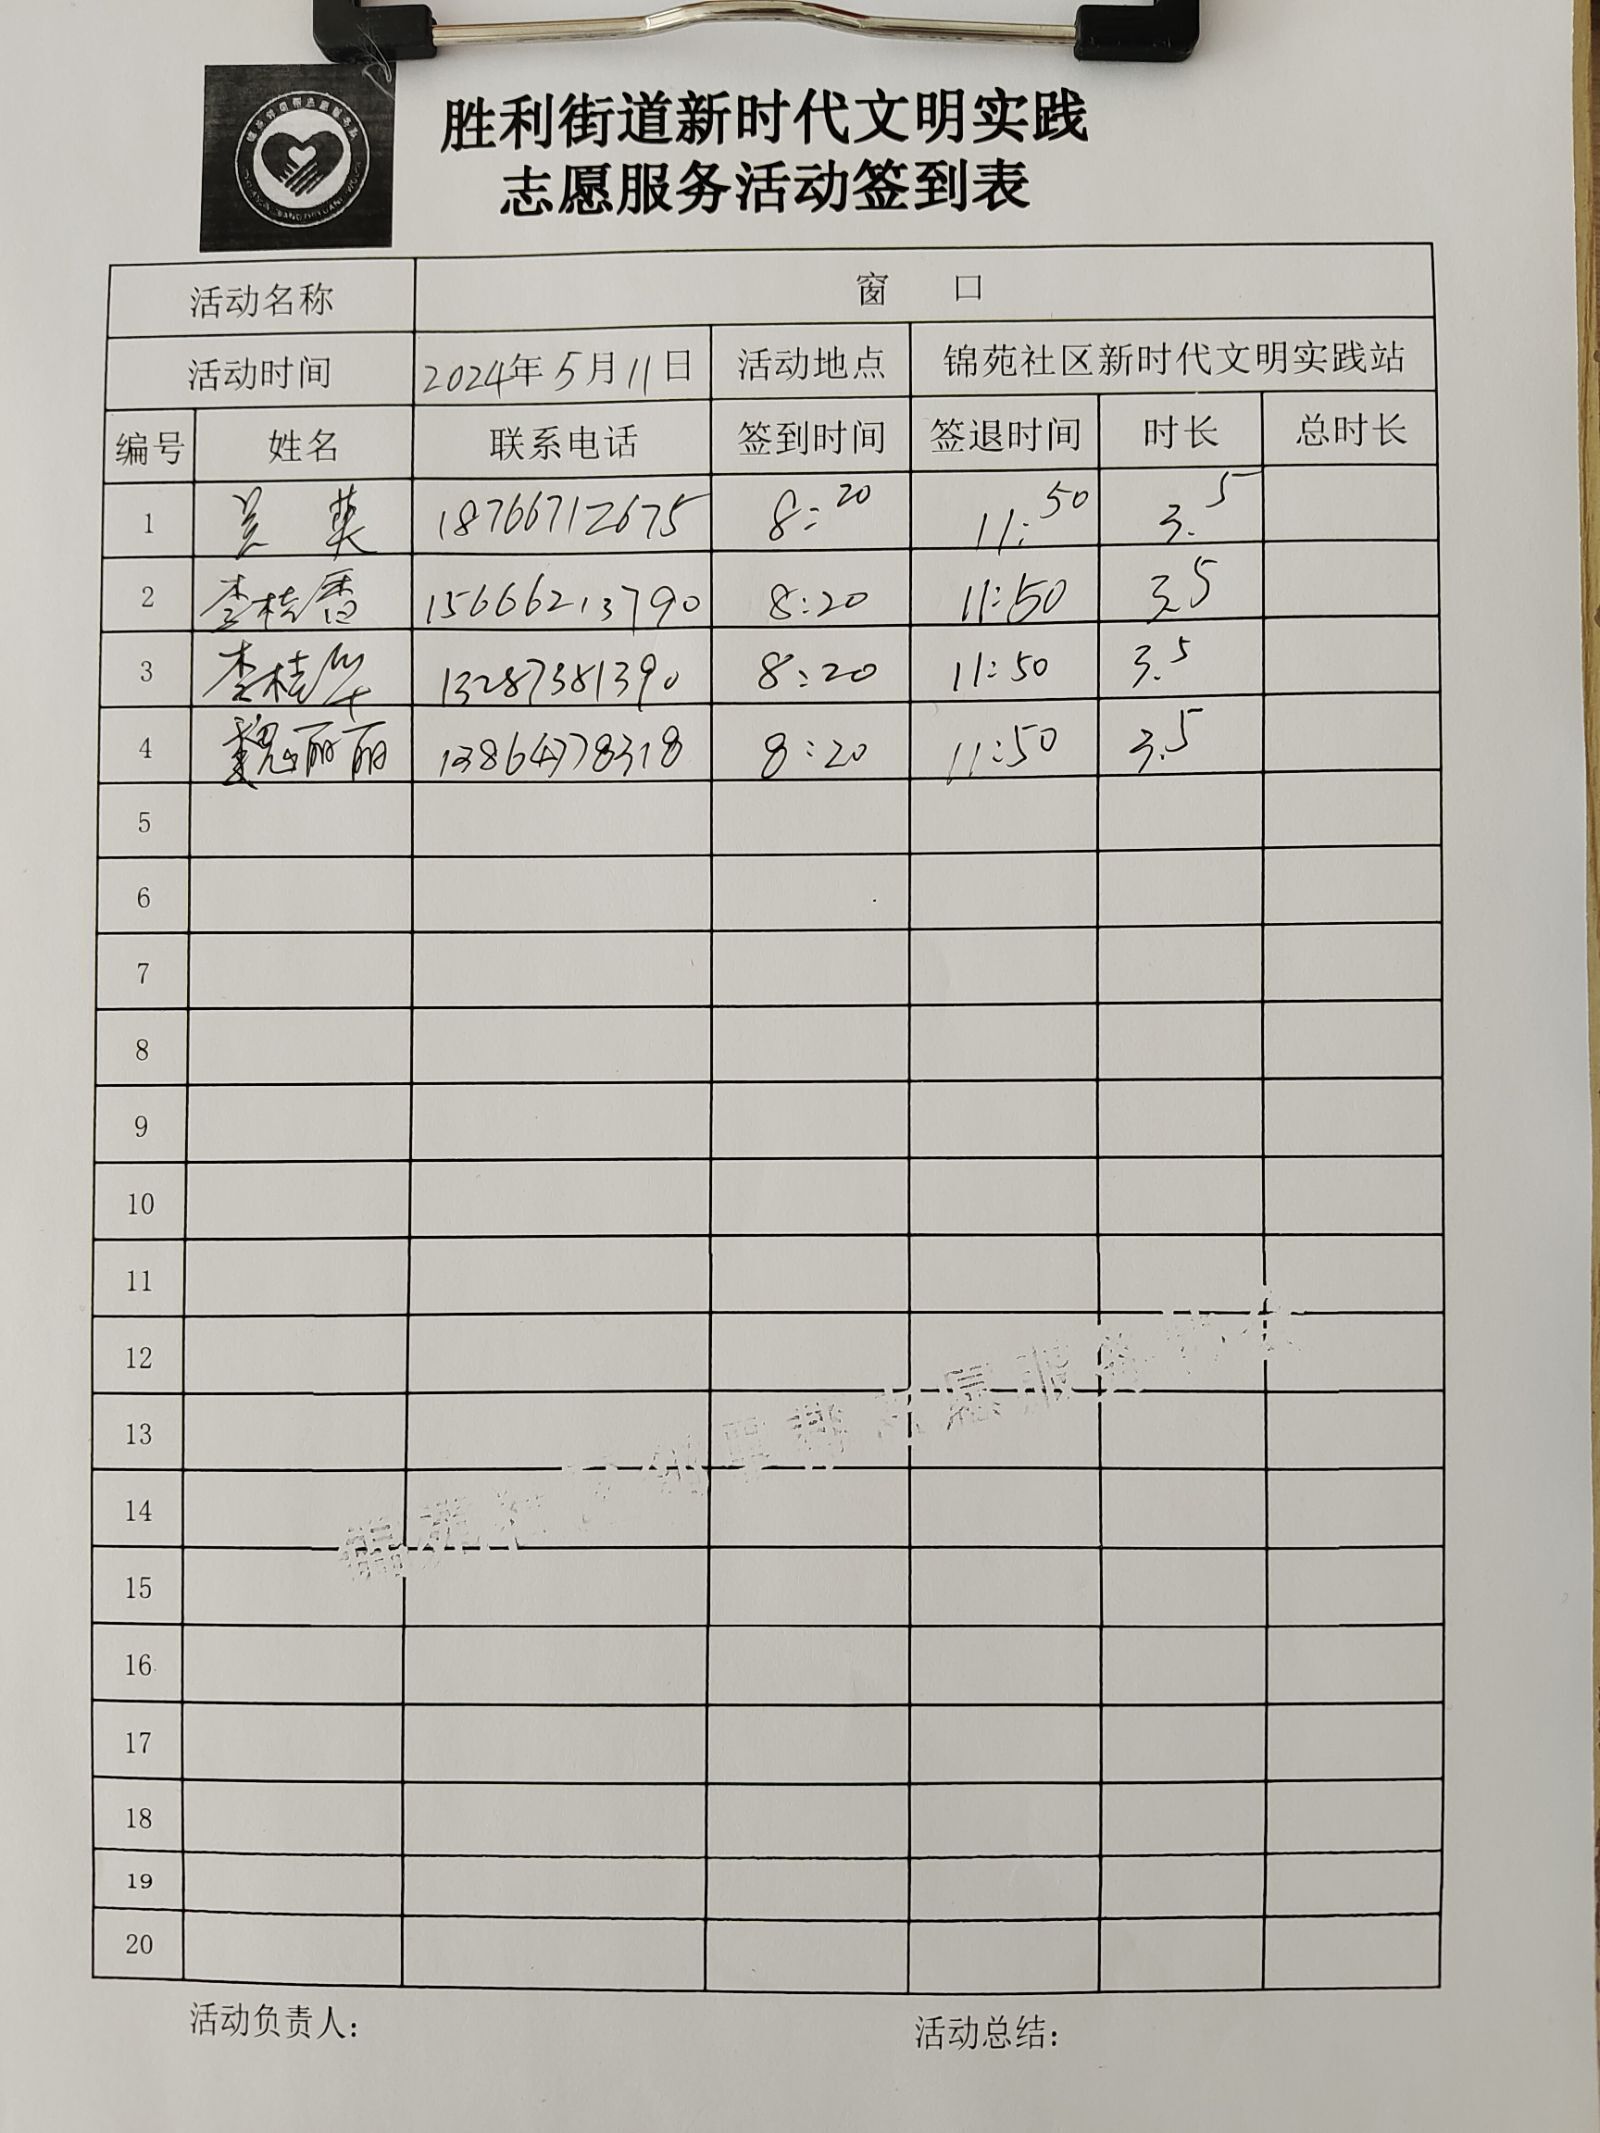 胜利街道新时代文明实践
志愿服务活动签到表
活动名称 窗 口
活动时间 2024年5月11日 活动地点 锦苑社区新时代文明实践站
编号 姓名 联系电话 签到时间 签退时间 时长 总时长
1 18766712675 8:20 11:50 3.5
2 李桂香 15666213790 8:20 11:50 3.5
3 李桂华 13287381390 8:20 11:50 3.5
4 魏丽丽 13864778318 8:20 11:50 3.5
5
6
7
8
9
10
11
12
13
14
15
16
17
18
19
20
活动负责人： 活动总结：